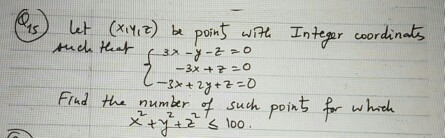 Q15) Let (x,y,z) be point with Integer coordinates
such that { 3x - y - z = 0
-3x + z = 0
-3x + 2y + z = 0
Find the number of such points for which
x² + y² + z² ≤ 100.